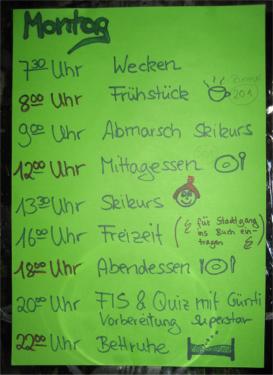 Montag
7:30 Uhr Wecken
8:00 Uhr Frühstück
9:00 Uhr Abmarsch Skikurs
12:00 Uhr Mittagessen
13:30 Uhr Skikurs
16:00 Uhr Freizeit (für Stadtgang
ins Buch ein-
tragen)
18:00 Uhr Abendessen
20:00 Uhr FIS & Quiz mit Günti
Vorbereitung Superstar
22:00 Uhr Bettruhe